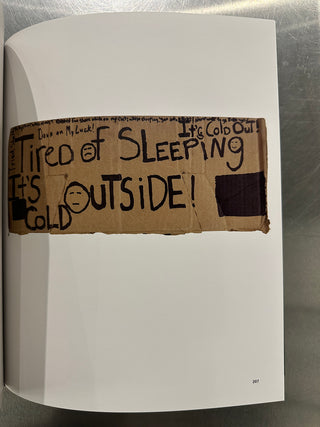 Down on My Luck!
It's Cold Out!
TiRED oF SLEEPiNg
It'S OUTSiDE!
COLD
207